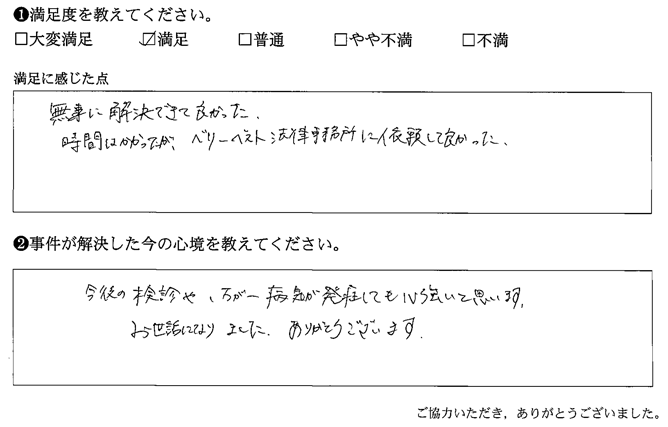 ❶満足度を教えてください。
□大変満足 ☑満足 □普通 □やや不満 □不満
満足に感じた点
無事に解決できて良かった。
時間はかかったが、ベリーベスト法律事務所に依頼して良かった。
❷事件が解決した今の心境を教えてください。
今後の検診や、万が一病気が発症しても心強いと思います。
お世話になりました。ありがとうございます。
ご協力いただき，ありがとうございました。